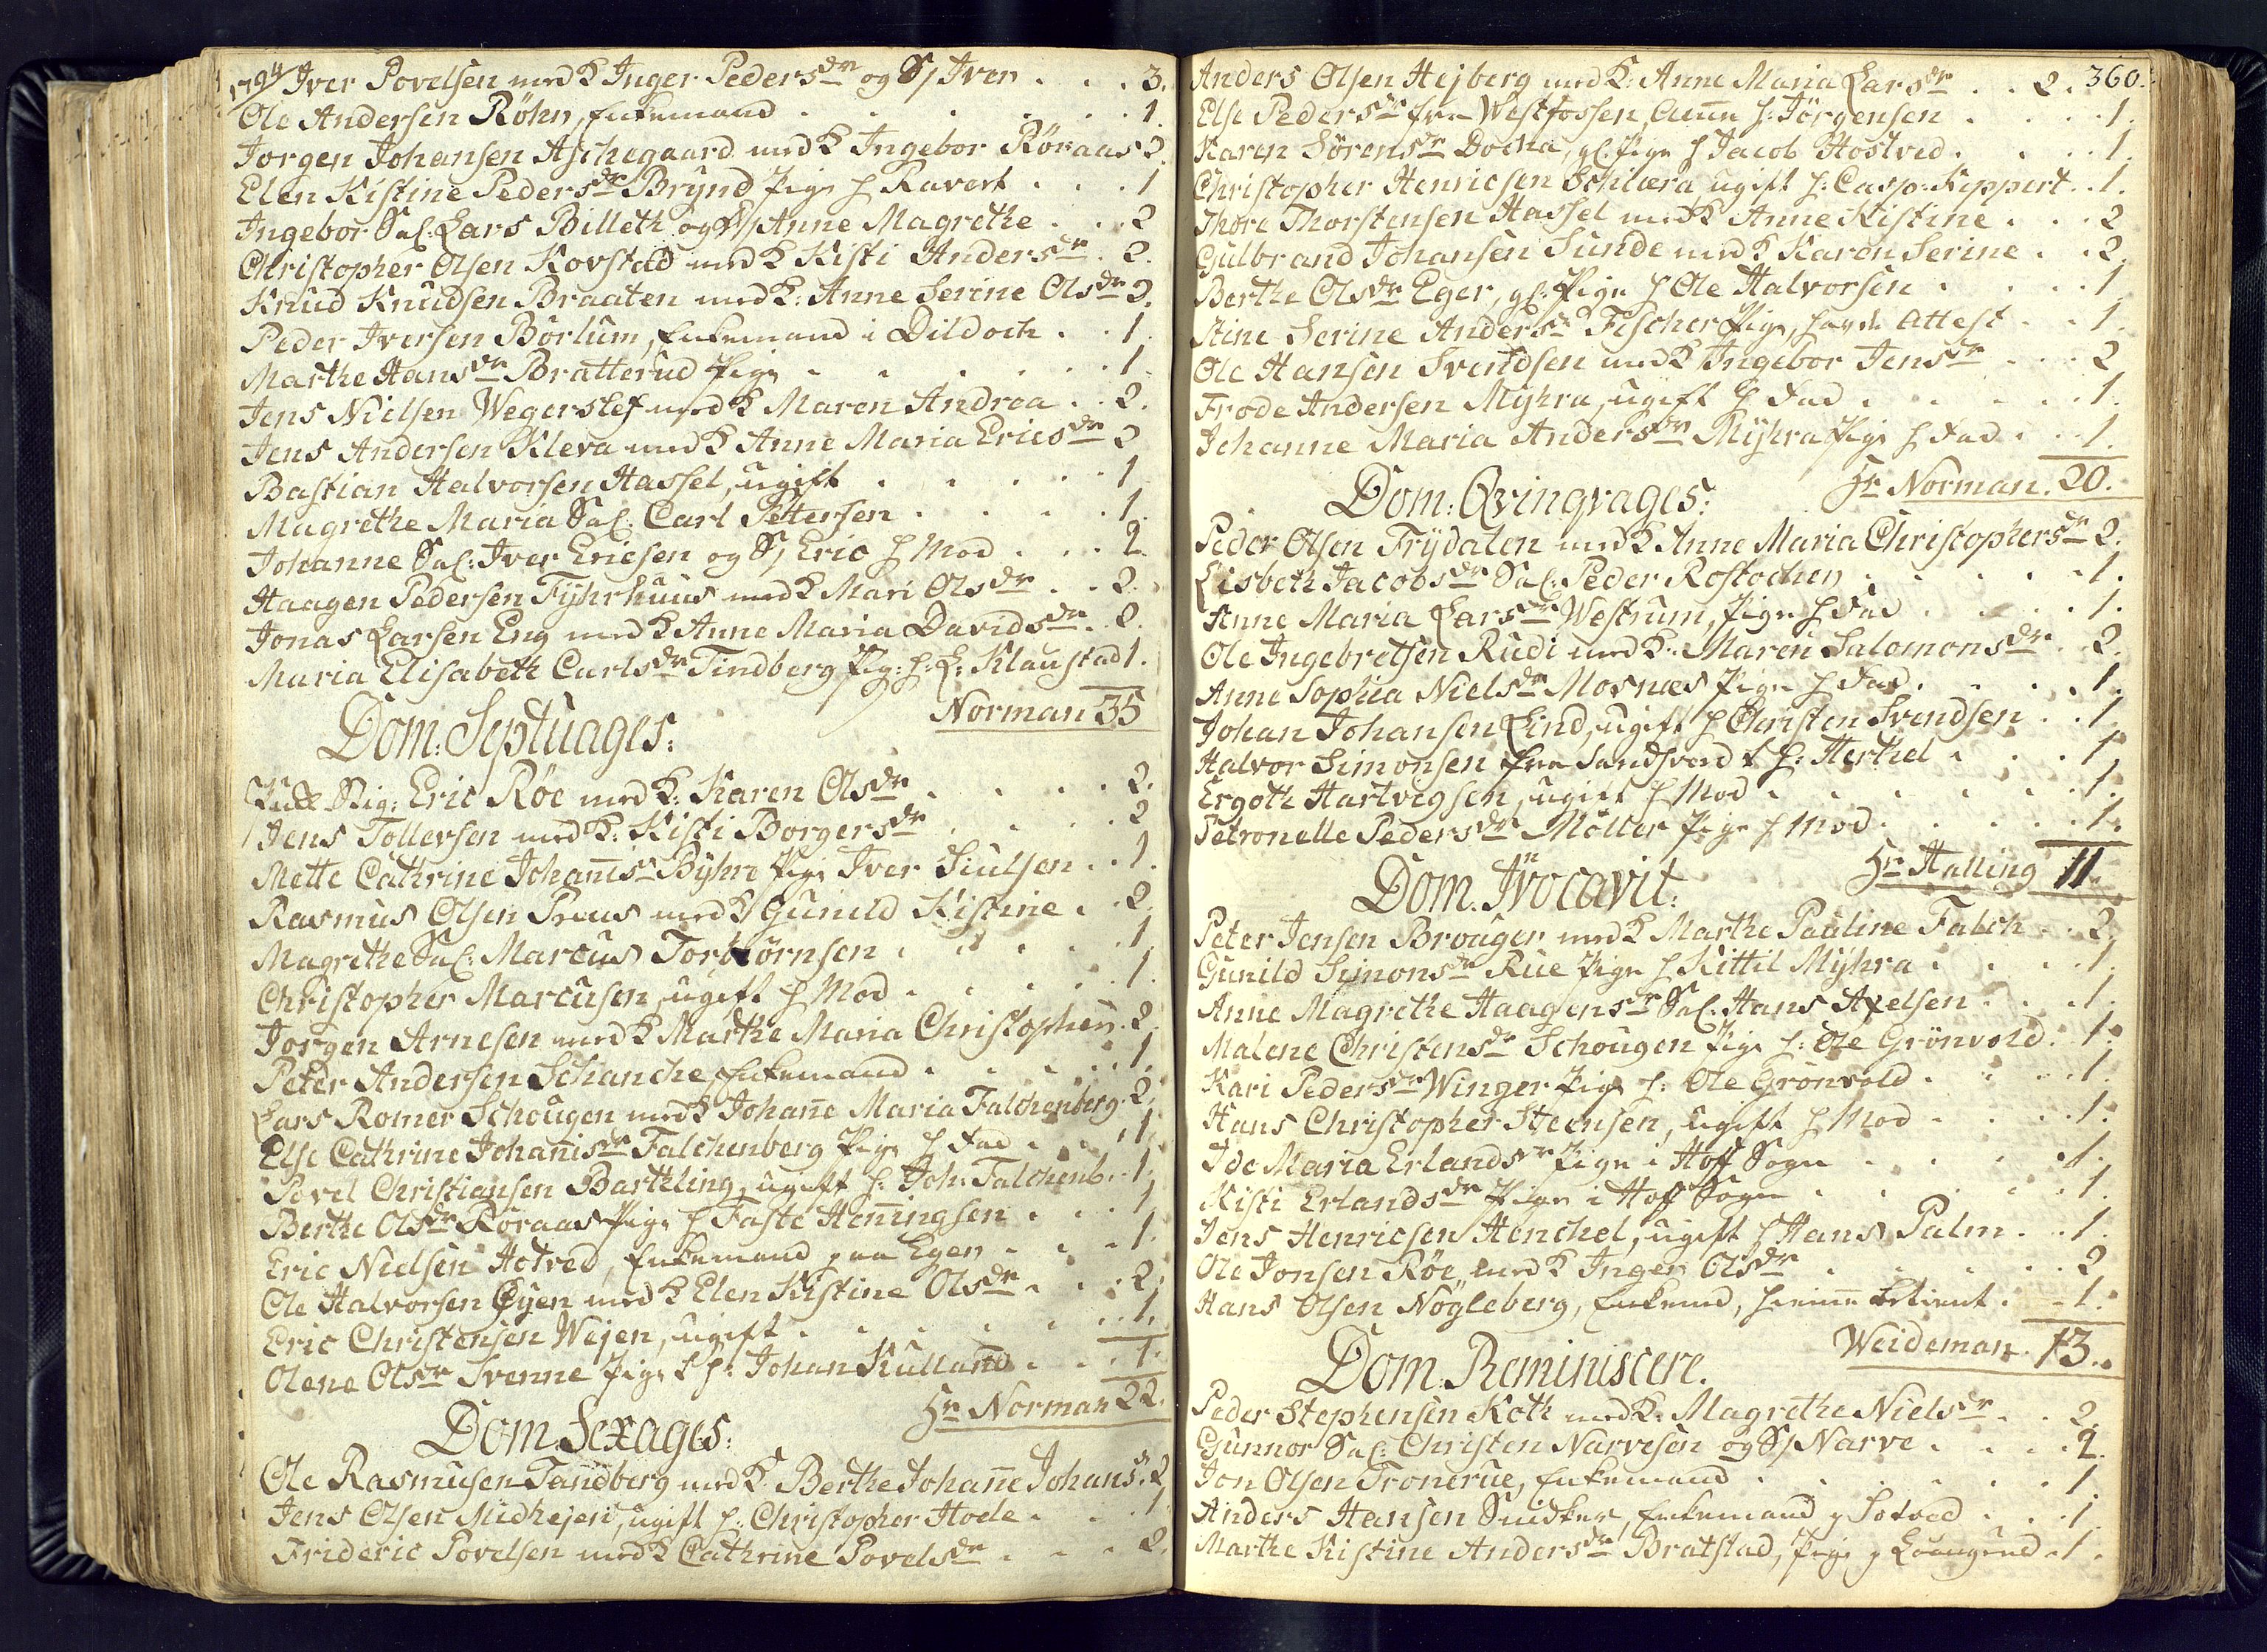 1794 Iver Povelsen med K Inger Pedersdr og S/ Iver . . . 3.
Ole Andersen Röhn, Enkemand . . . . 1.
Jorgen Johansen Aschegaard med K Ingebor Röraas 2.
Elen Kistine Pedersdr Brynd Pige h Ravert . . . 1
Ingebor Sal: Lars Billeth og D/ Anne Magrethe . . . 2
Christopher Olsen Kovstad med K Kisti Andersdr . 2.
Knud Knudsen Braaten med K: Anne Serine Olsdr 2.
Peder Iversen Börlum, Enkemand i Dildoch . . 1.
Marthe Hansdr Bratterud Pige . . . . 1.
Jens Nielsen Wegerslef med K Maren Andrea . . 2.
Jens Andersen Kleva med K Anne Maria Ericsdr 2
Bastian Halvorsen Hassel, ugift . . . . 1
Magrethe Maria Sal: Carl Petersen . . . . 1.
Johanne Sal: Iver Ericsen og S/ Eric h Mod . . . 2.
Haagen Pedersen Fyhrhuus med K Mari Olsdr . . 2.
Jonas Larsen Eng med K Anne Maria Davidsdr . 2.
Maria Elisabeth Carlsdr Tindberg Pig: h: L: Klaustad 1.
Norman 35
Dom: Septuages:
Eric Röe med K: Karen Olsdr . . . . 2.
Jens Tollefsen med K: Kisti Borgersdr . . . . 2
Mette Cathrine Johannisdr Byhre Pige Iver Siulsen . . 1.
Rasmus Olsen Preus med K Gunild Kistine . . 2.
Magrethe Sal: Marcus Torbiörnsen . . . . 1.
Christopher Marcusen, ugift h Mod . . . . 1.
Jorgen Arnesen med K Marthe Maria Christophers . 2.
Peter Andersen Schanche, Enkemand . . . . 1.
Lars Romer Schougen med K Johane Maria Falchenberg . 2.
Else Cathrine Johanisdr Falchenberg Pige h Fad . . . 1
Povel Christiansen Barthling, ugift h: Joh: Falchenb. . 1.
Berthe Olsdr Röraas Pige h Faste Henningsen . . . 1
Eric Nielsen Hotved, Enkemand paa Egen . . . 1.
Ole Halvorsen Øyen med K Elen Kistine Olsdr . . . 2.
Eric Christensen Wejen, ugift . . . . 1.
Olene Olsdr Svenne Pige h: Johan Kulland . . . 1.
Hr Norman 22.
Dom. Sexages:
Ole Rasmusen Tandberg med K Berthe Johane Johans . 2
Jens Olsen Midhejen, ugift h: Christopher Hode . . . 1.
Frideric Povelsen med K Cathrine Povelsdr . . . 2.
360.
Anders Olsen Hejberg med K: Anne Maria Larsdr . . 2.
Else Pedersdr fra Westfossen, h: Jörgensen . . . 1.
Karen Sörensdr Docka, gl: Pige h Jacob Hostved . . . 1.
Christopher Henricsen Schlæra ugift h: Casp: Kippert . . 1.
Thore Thorstensen Hassel med K Anne Kistine . . . 2
Gulbrand Johansen Sunde med K Karen Serine . . 2.
Berthe Olsdr Eger, gl: Pige h Ole Halvorsen . . . 1
Stine Serine Andersdr Fischer Pige, havde Attest . . 1.
Ole Hansen Svendsen med K Ingebor Jensdr . . . 2
Frode Andersen Myhra, ugift h Fad . . . . 1.
Johanne Maria Andersdr Myhra Pige h Fad . . . 1.
Hr Norman. 20.
Dom: Qvinqvages:
Peder Olsen Frydalen med K Anne Maria Christophersdr 2.
Lisbeth Jacobsdr Sal: Peder Rostochen . . . . 1.
Anne Maria Larsdr Westrum, Pige h Fad . . . . 1.
Ole Ingebretsen Rudi med K: Maren Salomonsdr . 2.
Anne Sophia Nielsdr Mosnæs Pige h Fad . . . . 1.
Johan Johansen Lind, ugift h Christen Svendsen . . 1
Halvor Simonsen fra Sandsverd h: Herkel . . . 1
Ergoth Hartvigsen, ugift h Mod . . . . 1.
Petronelle Pedersdr Möller Pige h Mod . . . . 1.
Hr Halling 11
Dom. Invocavit:
Peter Jensen Brouger med K Marthe Pauline Falch . . 2.
Gunild Simonsdr Rue Pige h Kittil Myhra . . . 1.
Anne Magrethe Haagensdr Sal: Hans Axelsen . . . 1.
Malene Christensdr Schougen Pige h: Ole Grönvold . 1.
Kari Pedersdr Winger Pige h: Ole Gronvold . . . 1.
Hans Christopher Steensen, ugift h Mod . . . 1.
Ide Maria Erlandsdr Pige i Hoff Sogn . . . 1.
Kisti Erlandsdr Pige i Hoff Sogn . . . . 1.
Jens Henricsen Henchel, ugift h Hans Palm . . 1.
Ole Jonsen Röe med K Inger Olsdr . . . . 2
Hans Olsen Nögleberg, Enkemd, betient . . 1.
Weideman. 13.
Dom. Reminiscere.
Peder Stephensen Koth med K: Magrethe Nielsdr . . 2.
Gunnor Sal: Christen Narvesen og S/ Narve . . . 2.
Jon Olsen Tronerue, Enkemand . . . . 1.
Anders Hansen Snidker, Enkemand p Sotved . . . 1.
Marthe Kistine Andersdr Bratstad, Pige p Laugerud . 1.